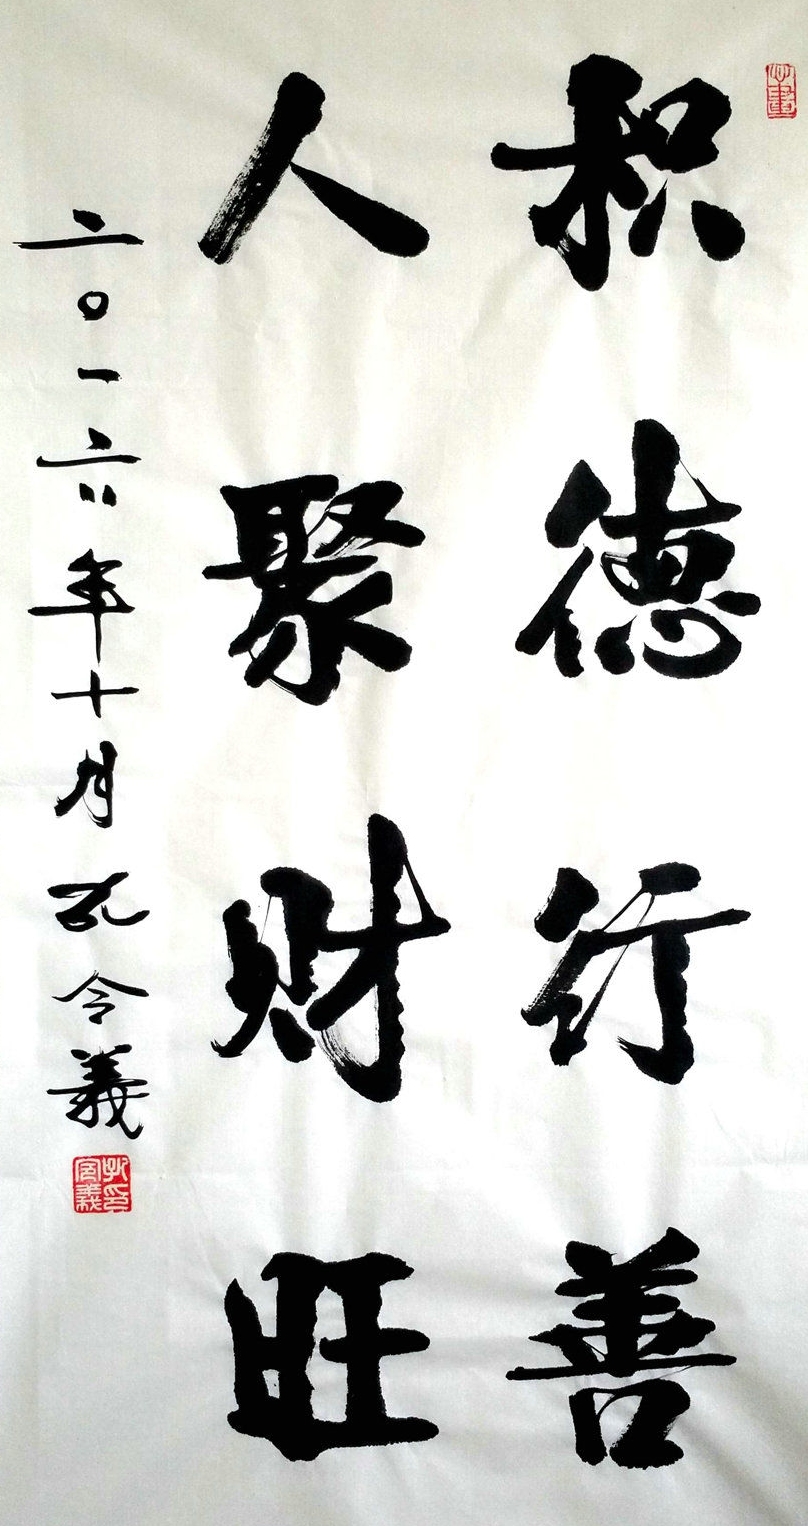 积德行善
人聚财旺
二〇一六年十月孔令義